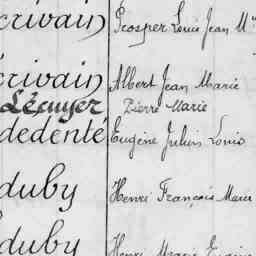 crivain Prosper Louis Jean M
crivain Albert Jean Marie
Lécuyer Pierre Marie
dedenté Eugène Julien Louis
duby Henri François Marie
duby Henri Marie Eugène